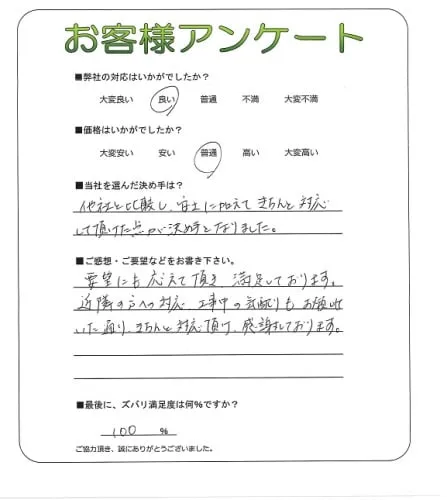 お客様アンケート
■弊社の対応はいかがでしたか？
大変良い 良い 普通 不満 大変不満
■価格はいかがでしたか？
大変安い 安い 普通 高い 大変高い
■当社を選んだ決め手は？
他社と比較し、安土に加えてきちんと対応
して頂けた点が決め手となりました。
■ご感想・ご要望などをお書き下さい。
要望にも応えて頂き、満足しております。
近隣の方への対応、工事中の気配りもお願いし
いた通り、きちんと対応頂け、感謝しております。
■最後に、ズバリ満足度は何％ですか？
100 ％
ご協力頂き、誠にありがとうございました。